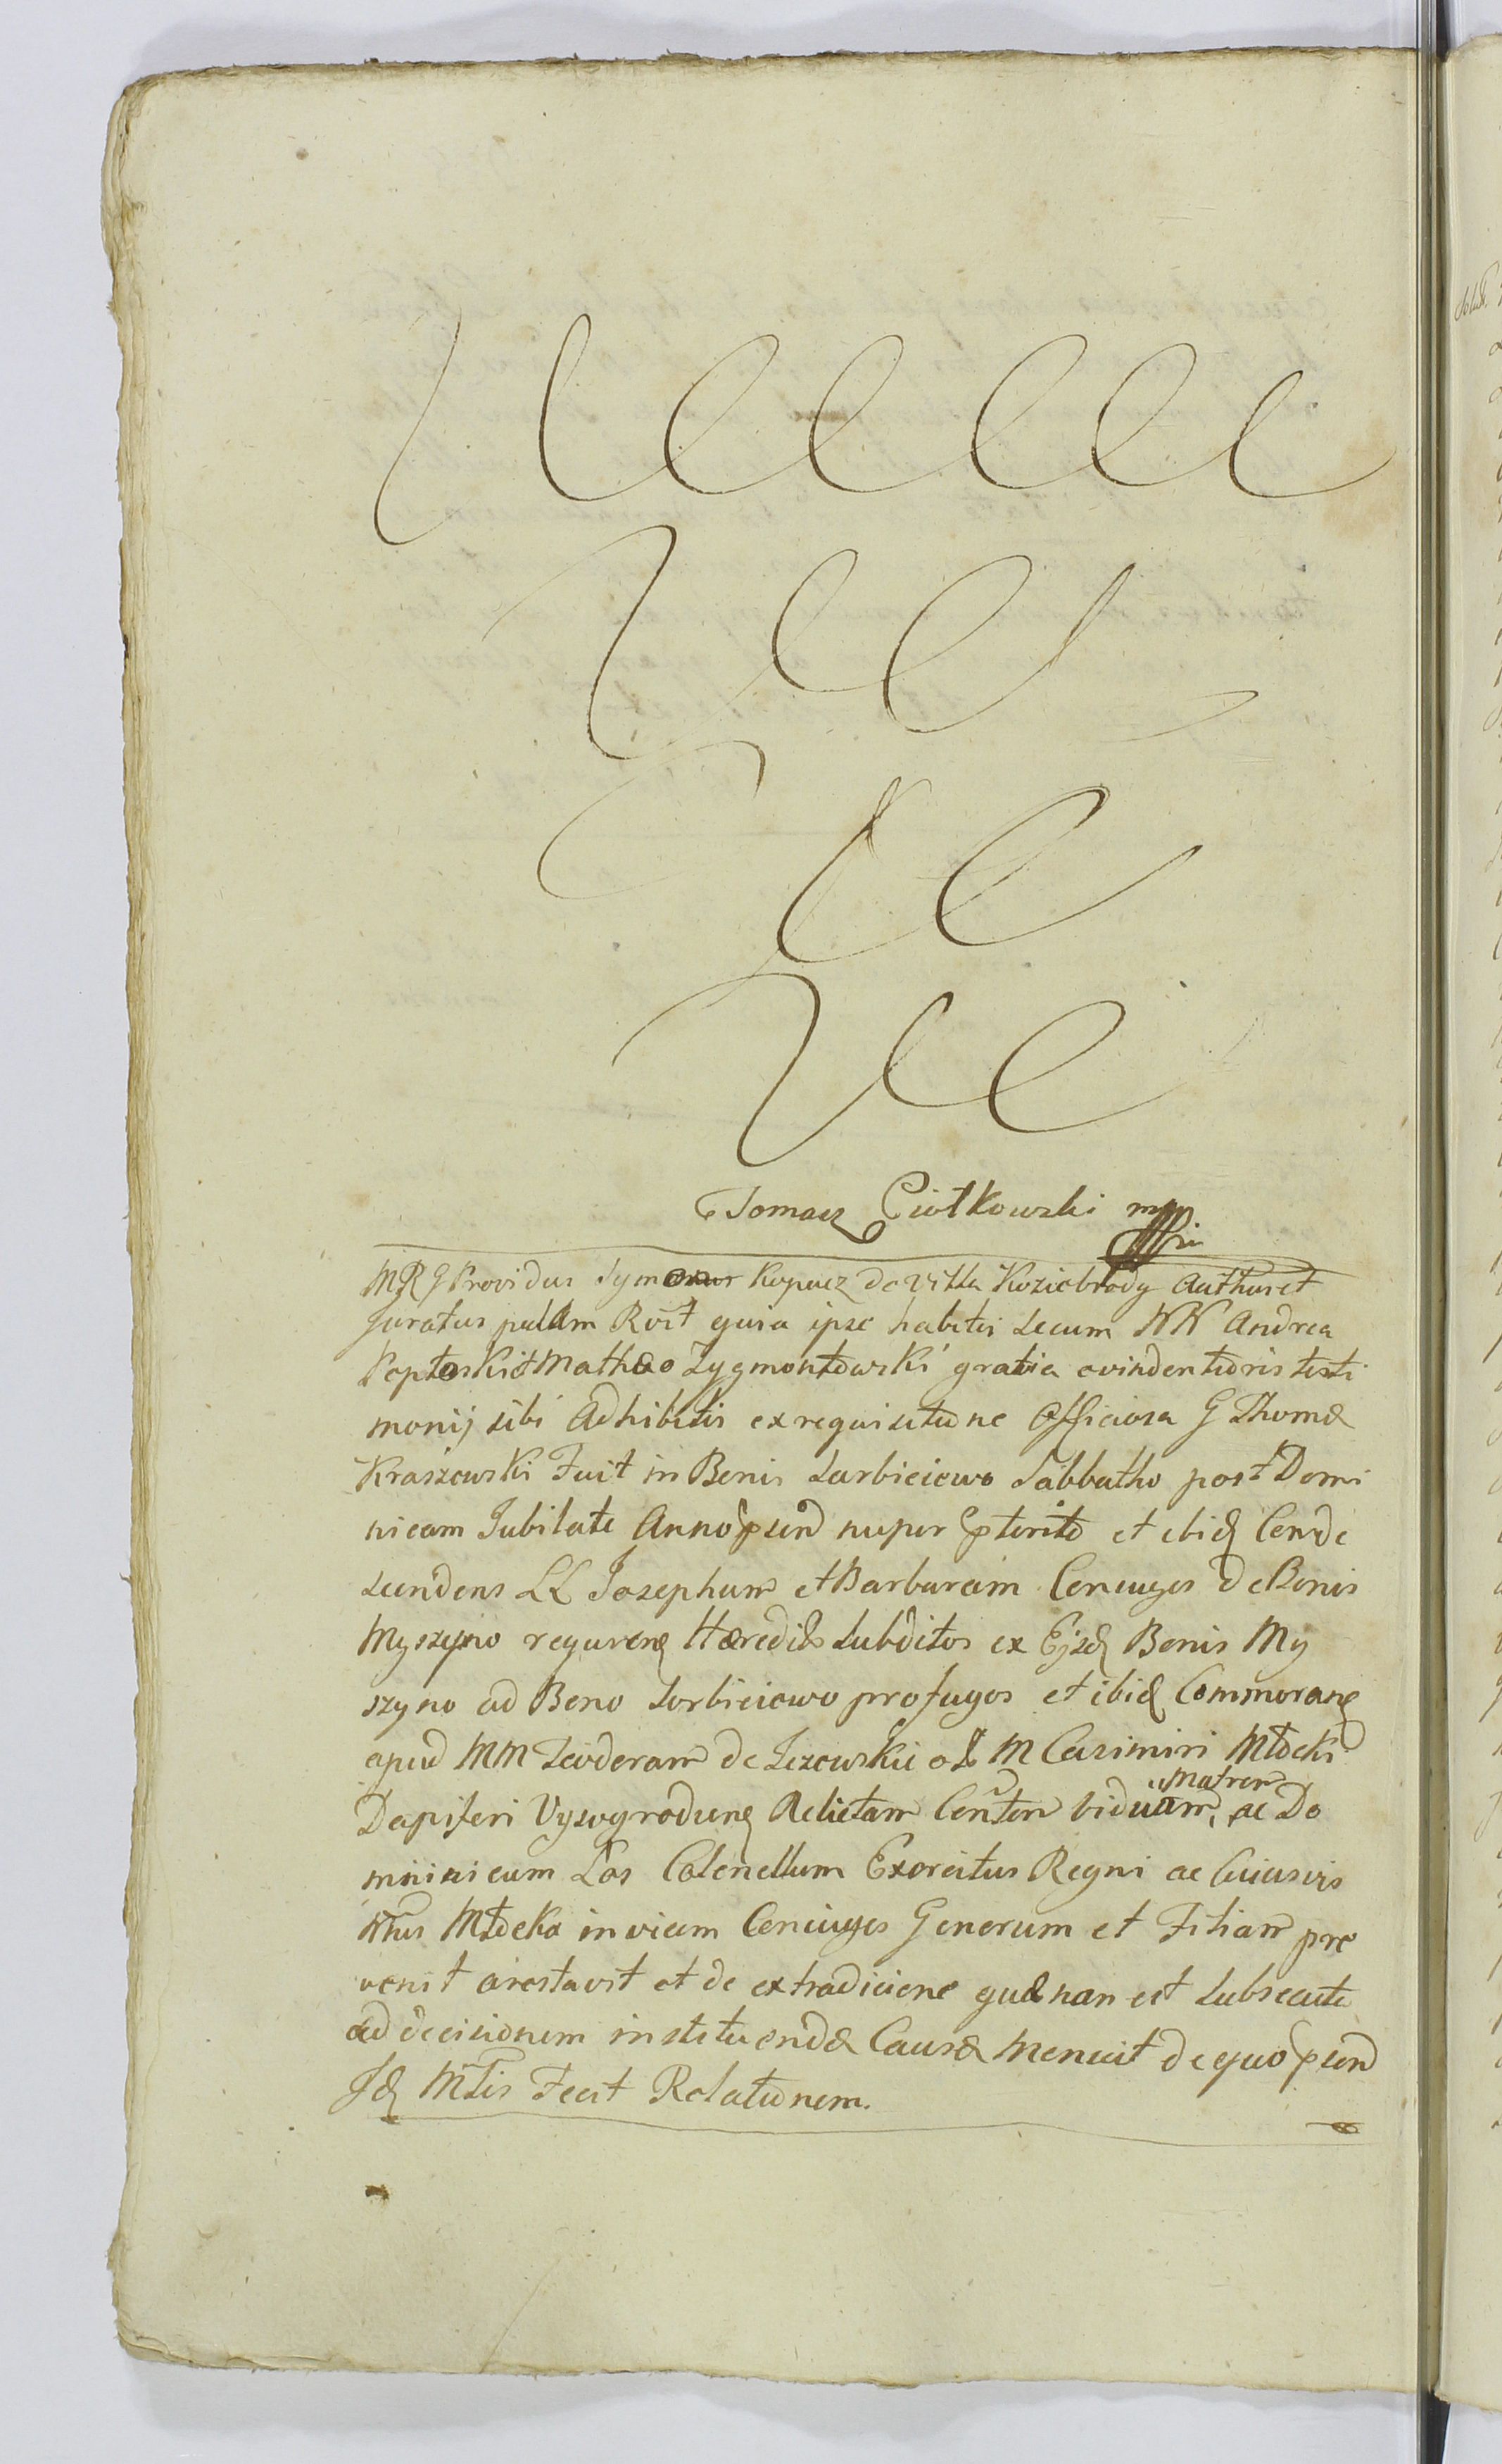 Tomasz Piotkowski mpp
MRG Providus Symonur Kopacz de Villa Koziebrody Authuret
Juratus palam Rvit quia ipse habitis secum NN Andrea
et Mathæo Zygmontowski gratia evindentioris testi
monij sibi Adhibitis ex requisitione Officiosa G Thomæ
Kraszewski Fuit in Bonis Sarbiciewo Sabbatho post Domi
nicam Jubilate Anno psend nuper pterito et ibid Conde
scendens LL Josephum et Barbaram Coniuges de Bonis
Myszyno Hæredit Subditos ex Ejsd Bonis My
szyno ad Bono Sorbiciewo profugos et ibid Commoran
apud MM Teoderam de Jezewskie ol M Casimiri Młocki
Dapiferi Vyszogrodien Relictam Conton viduam, Matrem ac Do
minicum Łos Colonellum Exercitus Regni ac Cuiusvis
Młocka invicem Coniuges Generum et Filiam pre
venit arestavit et de extradicione quænan est subsecuta
ad decisionem instituendæ Causæ Monuit de quo psend
Id Mtis Fecit Relationem.